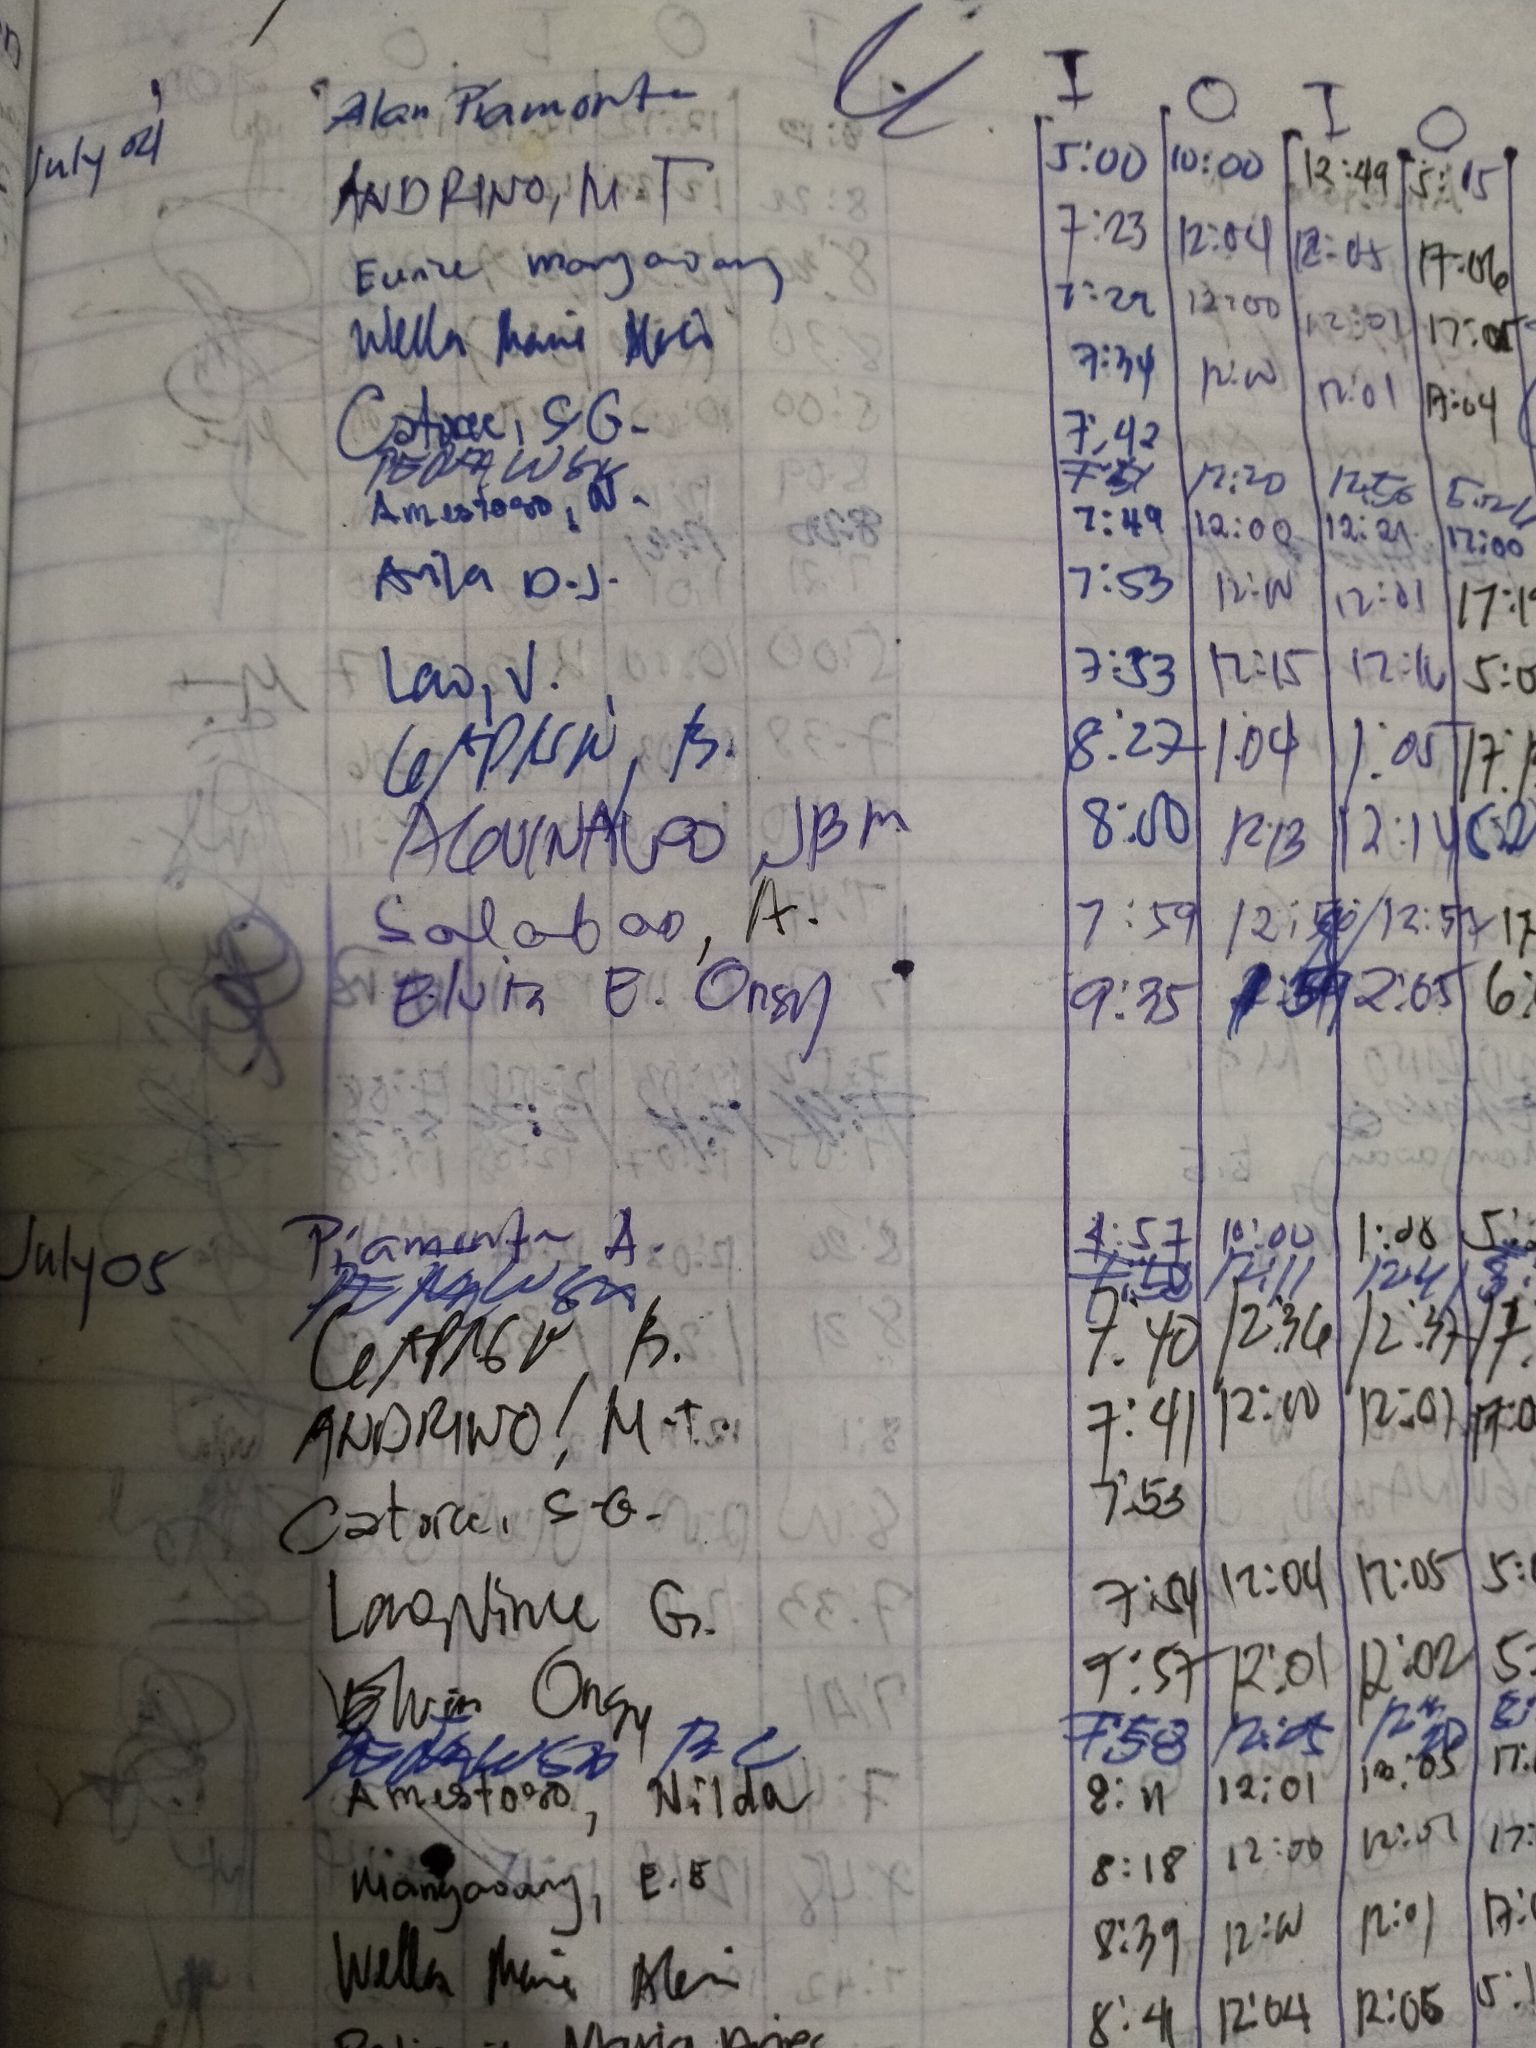 I O I O
July 04 Alan Piamonte 5:00 10:00 12:49 5:15
ANDRINO, M T 7:23 12:04 12:05 17:06
Eunice Mangaoang 7:29 12:00 12:01 17:05
Wella Marie 7:34 12:00 12:01 17:04
Catorce, S G. 7:42
7:51 12:20 12:50
Amestoso, N. 7:49 12:00 12:21 17:00
Avila D.J. 7:53 12:00 12:01 17:
Lao, V. 7:53 12:15 12:16 5:0
B. 8:27 1:04 1:05 17:
AGUINALDO JBM 8:00 12:13 12:14
Salabao, A. 7:59 12:56 12:57 17
Elvin E. Ongy 9:35 1:59 2:05 6:
July 05 Piamonte A. 4:57 10:00 1:00 5:
7:50 12:11 12:41
B. 7:40 12:36 12:37 17.
ANDRINO, M.T. 7:41 12:00 12:01 17:0
Catorce, S G. 7:53
Lao, Vince G. 7:54 12:04 12:05 5:0
Elvin Ongy 7:57 12:01 12:02 5:
7:58 12:25
Amestoso, Nilda 8:11 12:01 12:05 17:
Mangaoang, E.E 8:18 12:00 12:01 17:
Wella Marie 8:39 12:00 12:01 17:0
Maria 8:41 12:04 12:05 5:1